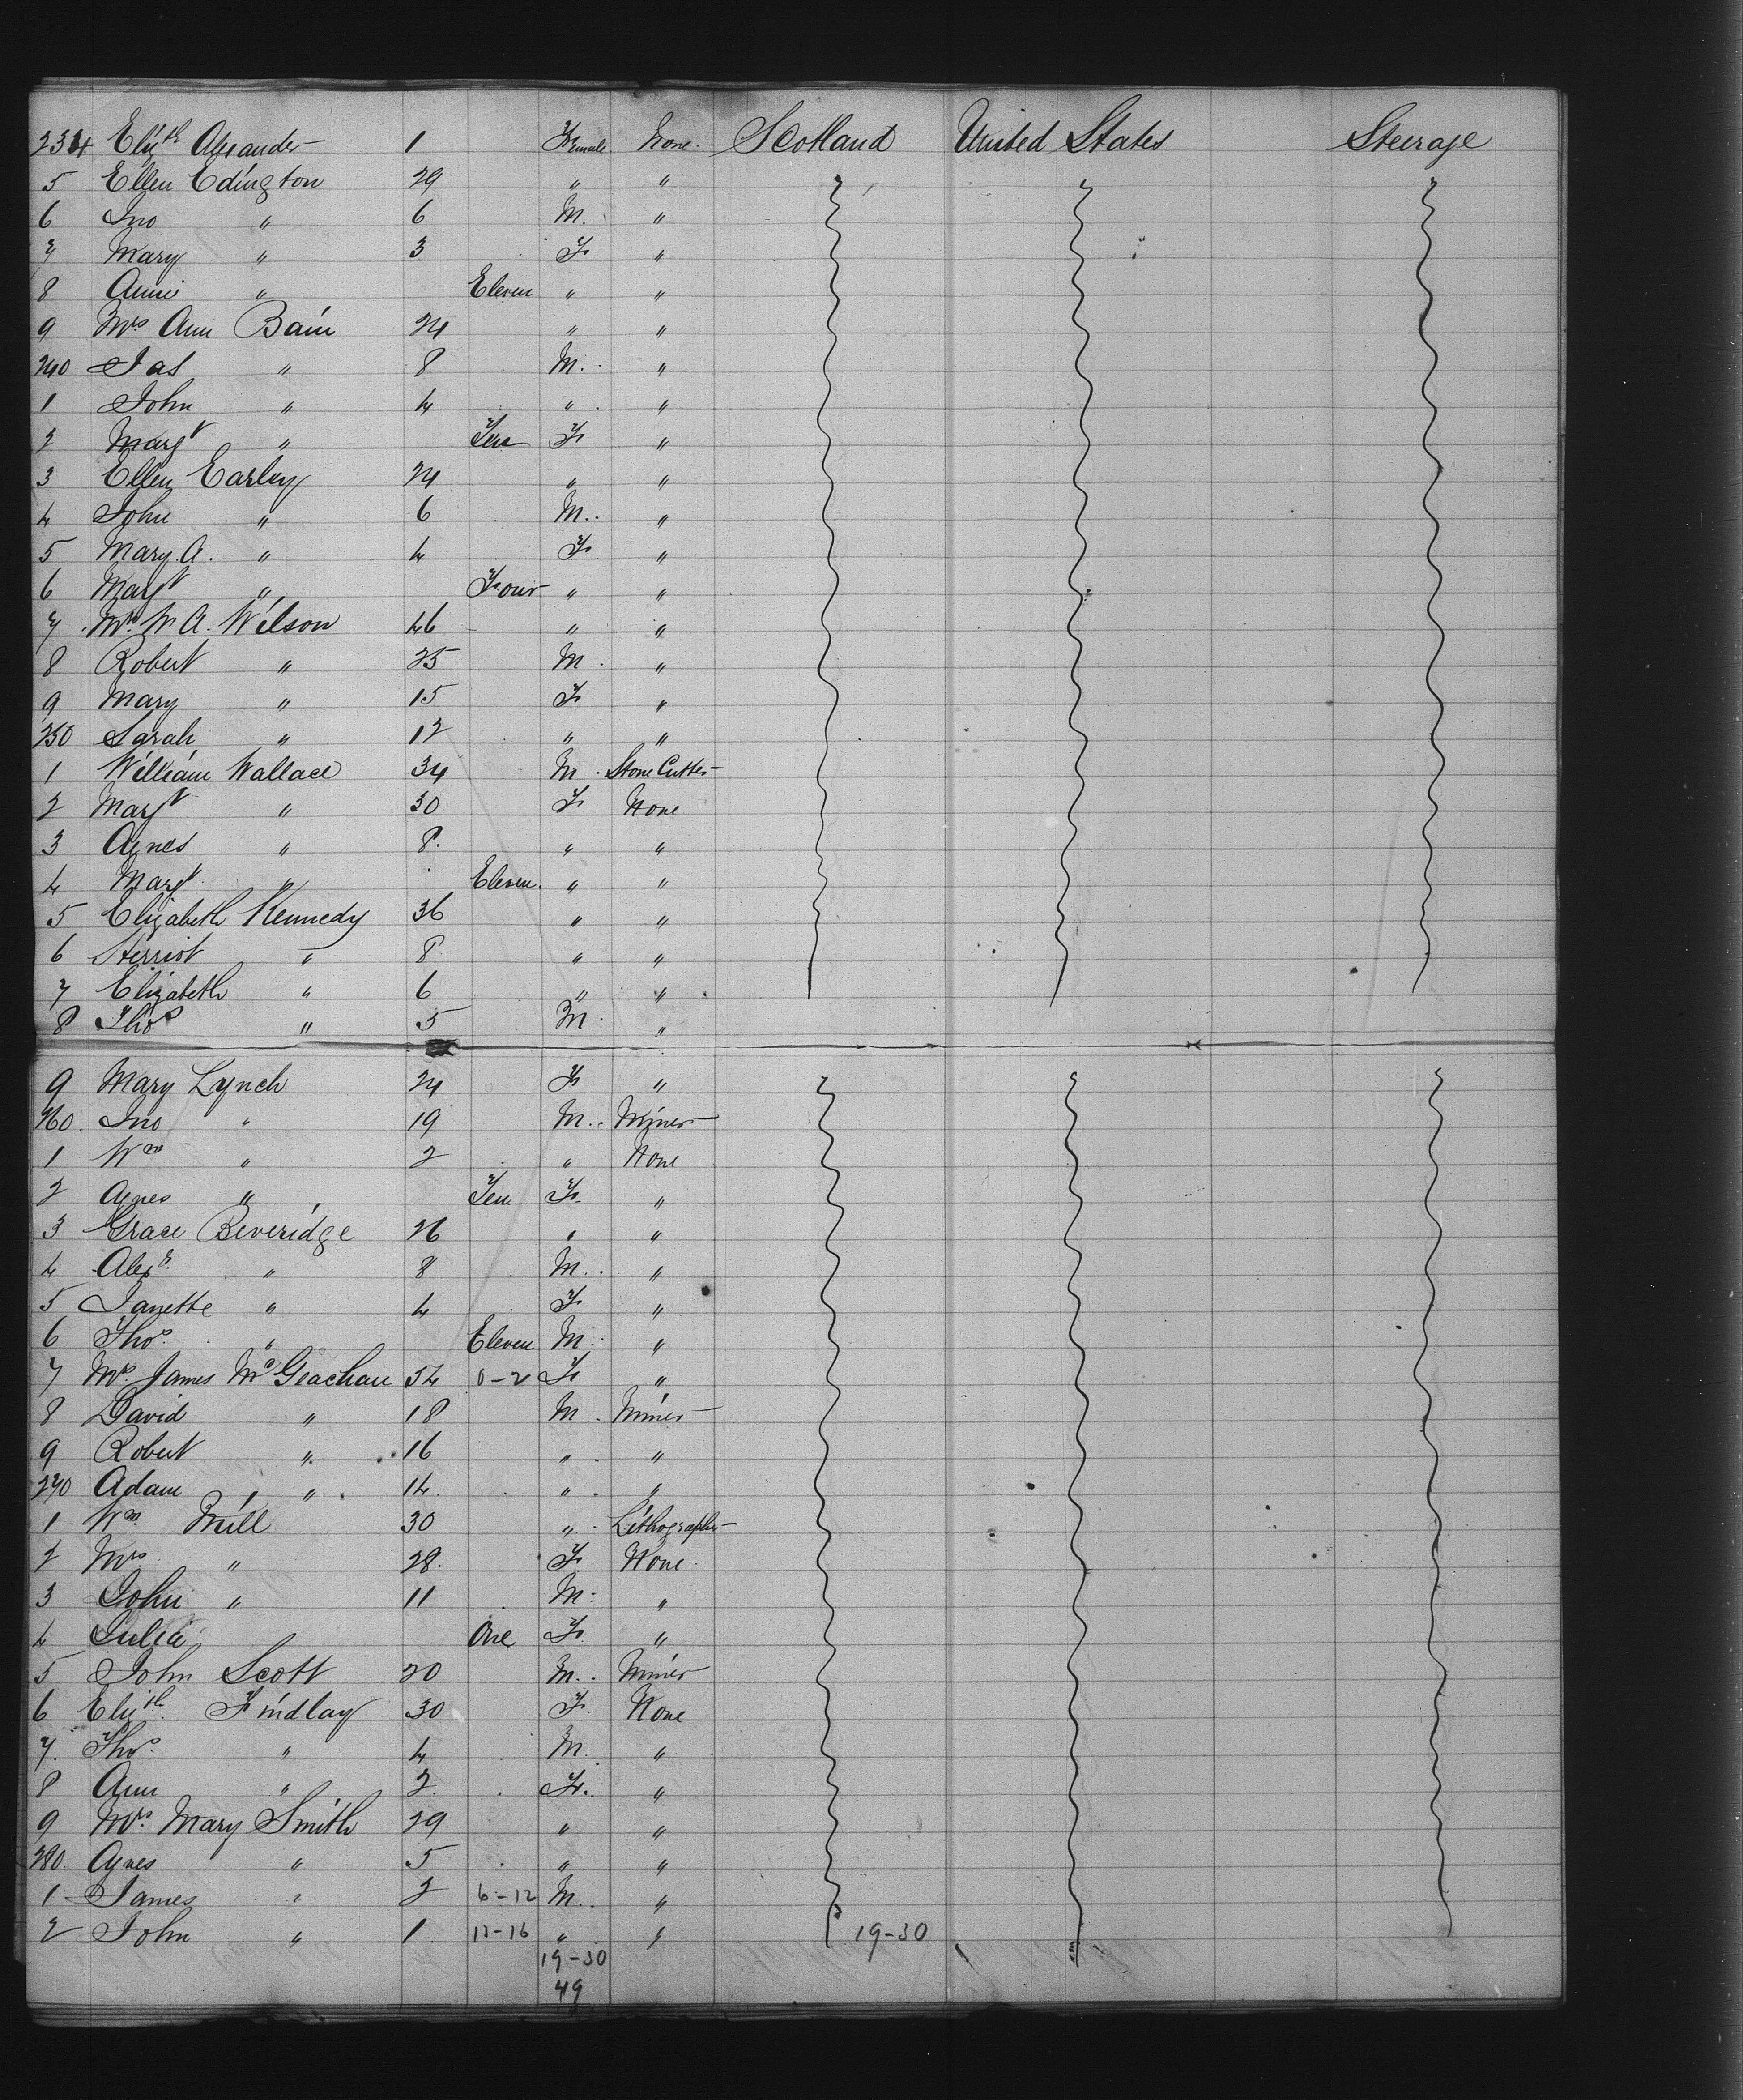 234 Elizth Alexander 1 Female None. Scotland United States Steerage
5 Ellen Edington 29 " "
6 Jno " 6 M. "
7 Mary " 3 F "
8 Annie " Eleven " "
9 Mrs Ann Bain 24 " "
240 Jas " 8 M. "
1 John " 4 " "
2 Margt " Ten F "
3 Ellen Earley 24 " "
4 John " 6 M. "
5 Mary A. " 4 F "
6 Margt " Four " "
7 Mrs W A. Wilson 46 " "
8 Robert " 25 M "
9 Mary " 15 F "
250 Sarah " 12 " "
1 William Wallace 34 M Stone Cutter
2 Margt " 30 F None
3 Agnes " 8. " "
4 Margt " Eleven " "
5 Elizabeth Kennedy 36 " "
6 " 8 " "
7 Elizabeth " 6 " "
8 Thos " 5 M "
9 Mary Lynch 24 F "
260. Jno " 19 M. Miner
1 Wm " 2 " None
2 Agnes " Ten F. "
3 Grace Beveridge 26 " "
4 Alexr. " 8 M. "
5 Janette " 4 F "
6 Thos. " Eleven M. "
7 Mrs. James McGeachan 54 0-2 F "
8 David " 18 M Miner
9 Robert " 16 " "
270 Adam " 14. " "
1 Wm. Mill 30 " Lithographer
2 Mrs " 28. F None
3 John " 11 M. "
4 Julia One F "
5 John Scott 20 M. Miner
6 Elizth. Findlay 30 F. None
7. Thos. " 4 M. "
8 Ann " 2 F. "
9 Mrs. Mary Smith 29 " "
280. Agnes " 5 " "
1 James " 2 6-12 M. "
2 John " 1 13-16 " " 19-30
19-30
49